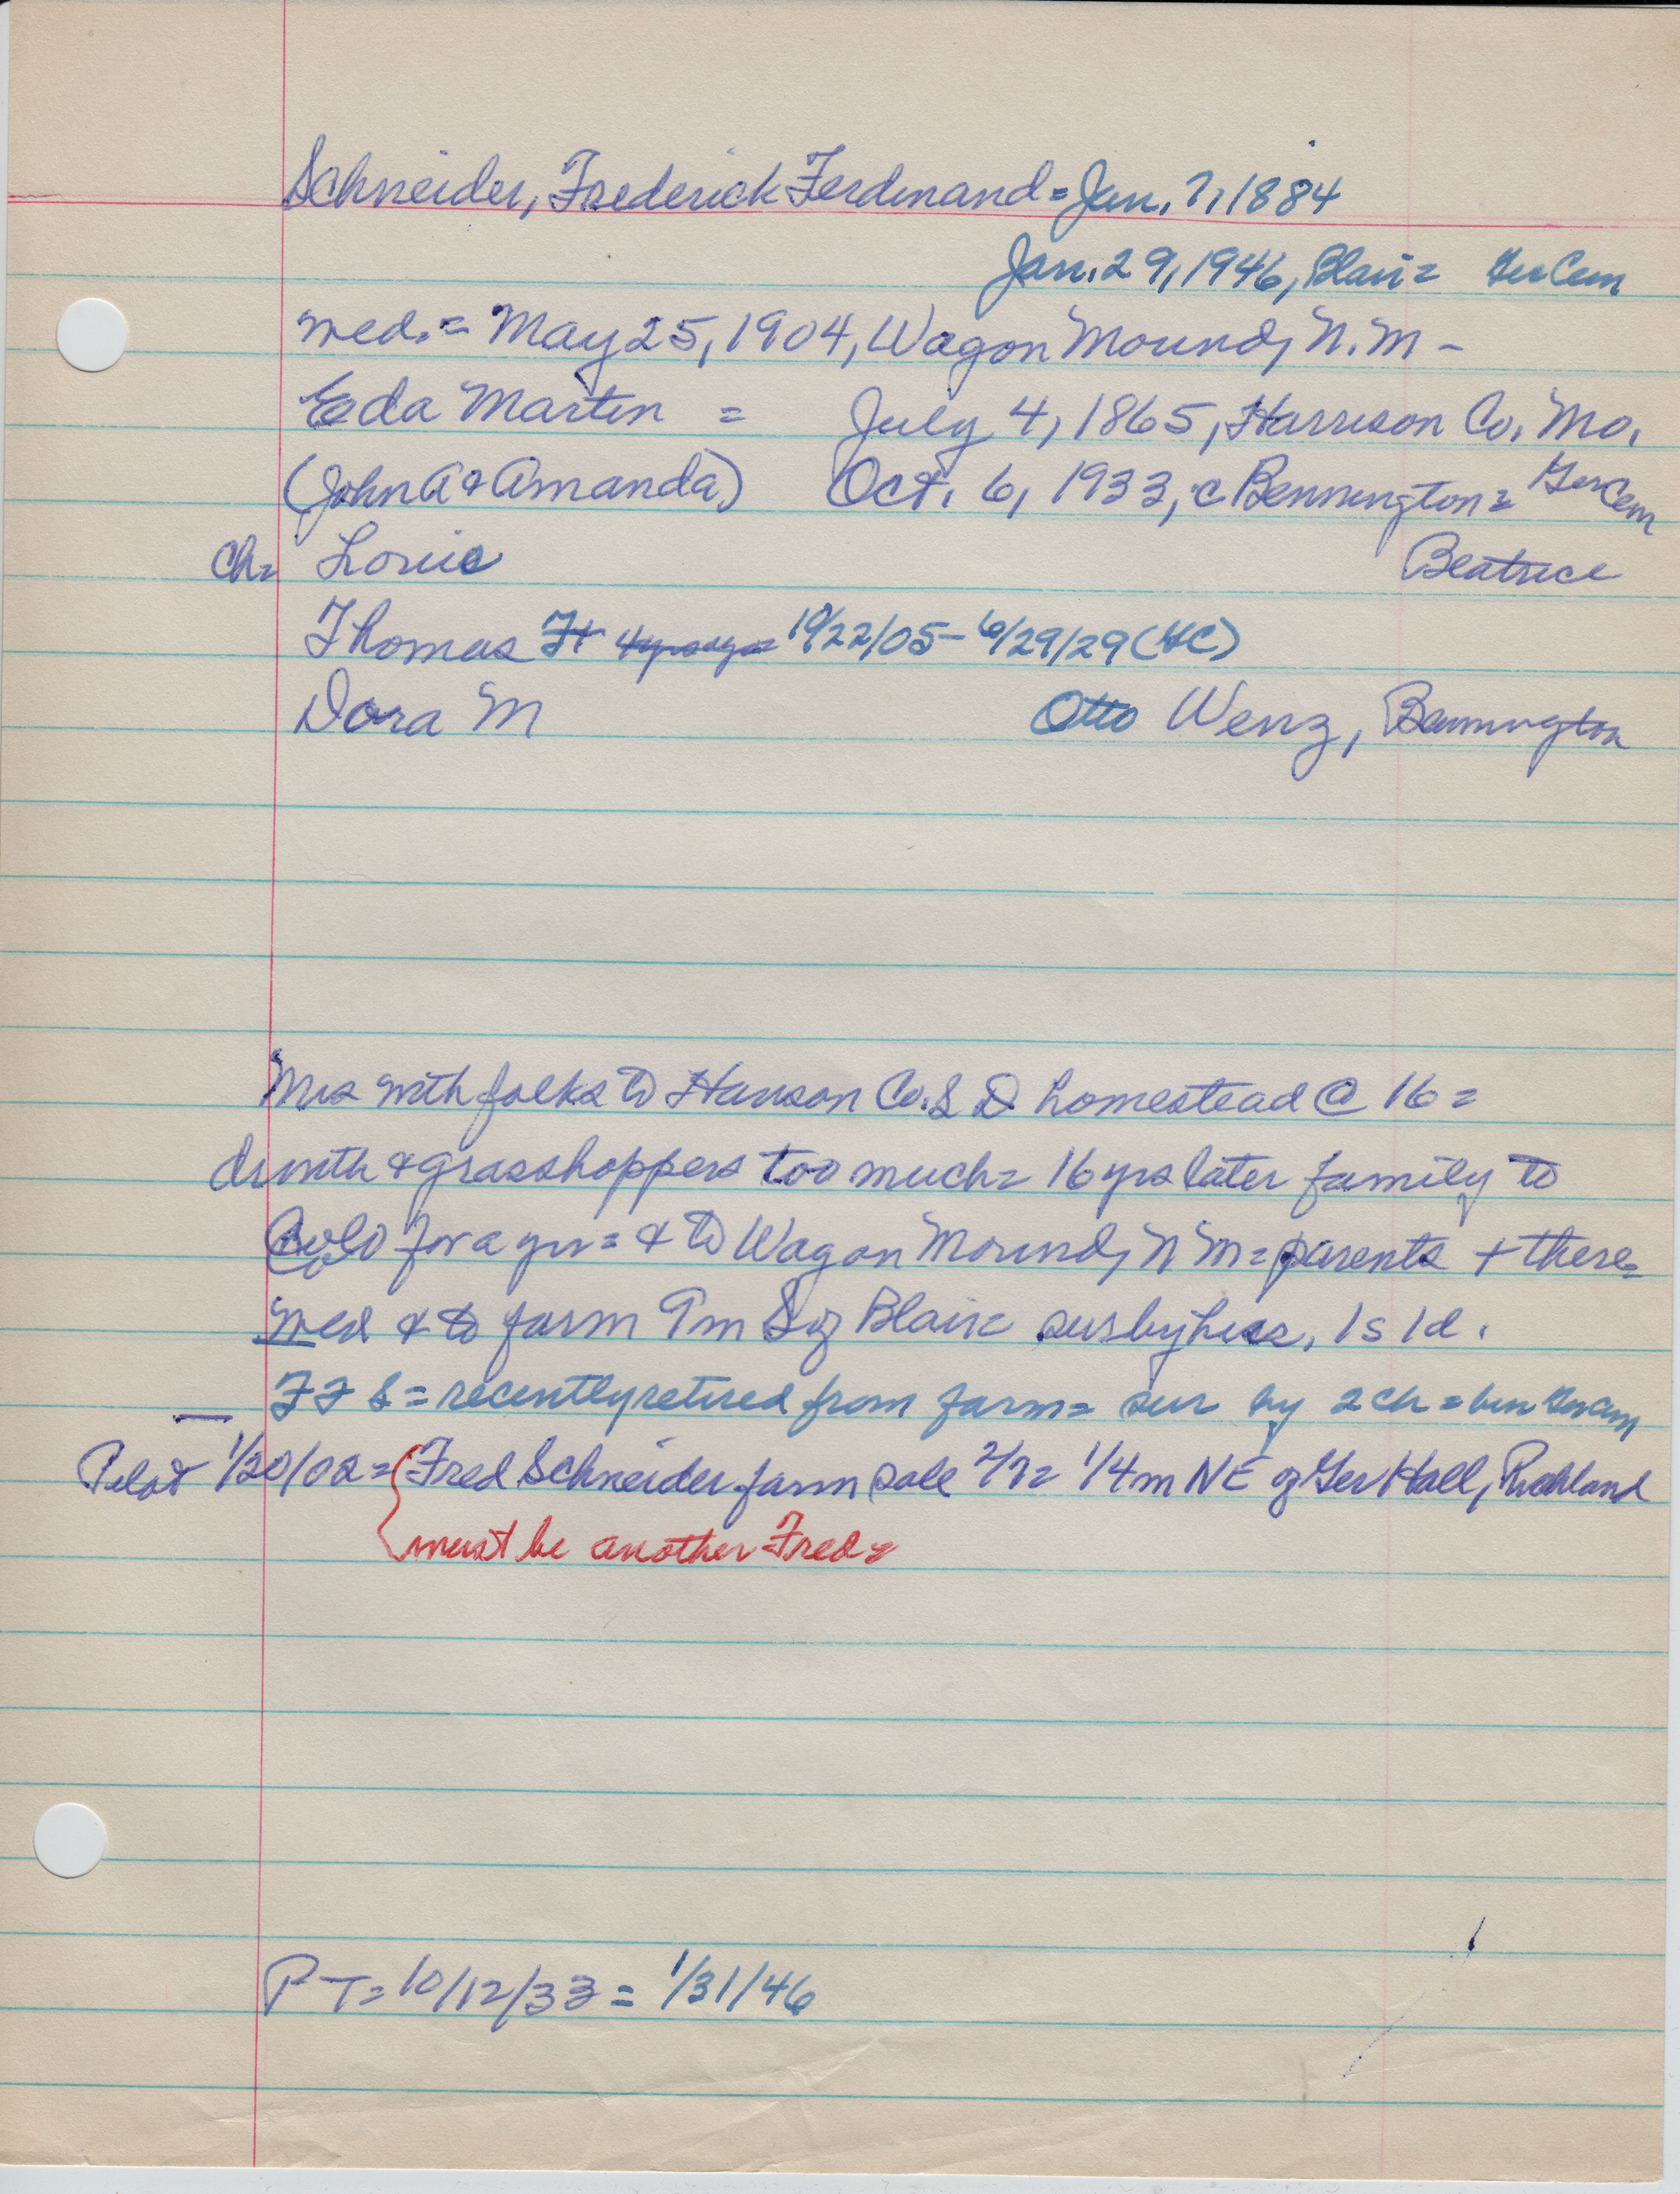 Schneider, Frederick Ferdinand = Jan. 7, 1884
Jan. 29, 1946, Blair = Ger Cem
wed. = May 25, 1904, Wagon Mound, N.M -
Eda Martin = July 4, 1865, Harrison Co. Mo.
(John A & Amanda) Oct. 6, 1933, c Bennington = Ger Cem
ch = Louie Beatrice
Thomas 10/22/05 - 6/29/29 (GC)
Dora M Otto Wenz, Bennington
Mrs with folks to Hanson Co. S D homestead @ 16 =
drouth & grasshoppers too much = 16 yrs later family to
Colo for a yr = & to Wagon Mound, N M = parents + there =
wed & to farm 9m S of Blair = sur by hus, 1s 1d.
F F S = recently retired from farm = sur by 2 ch = bur Ger Cem
Pilot 1/20/02 = Fred Schneider farm sale 2/7 = 1/4 m NE of Ger Hall, Richland
must be another Fred =
P T = 10/12/33 = 1/31/46